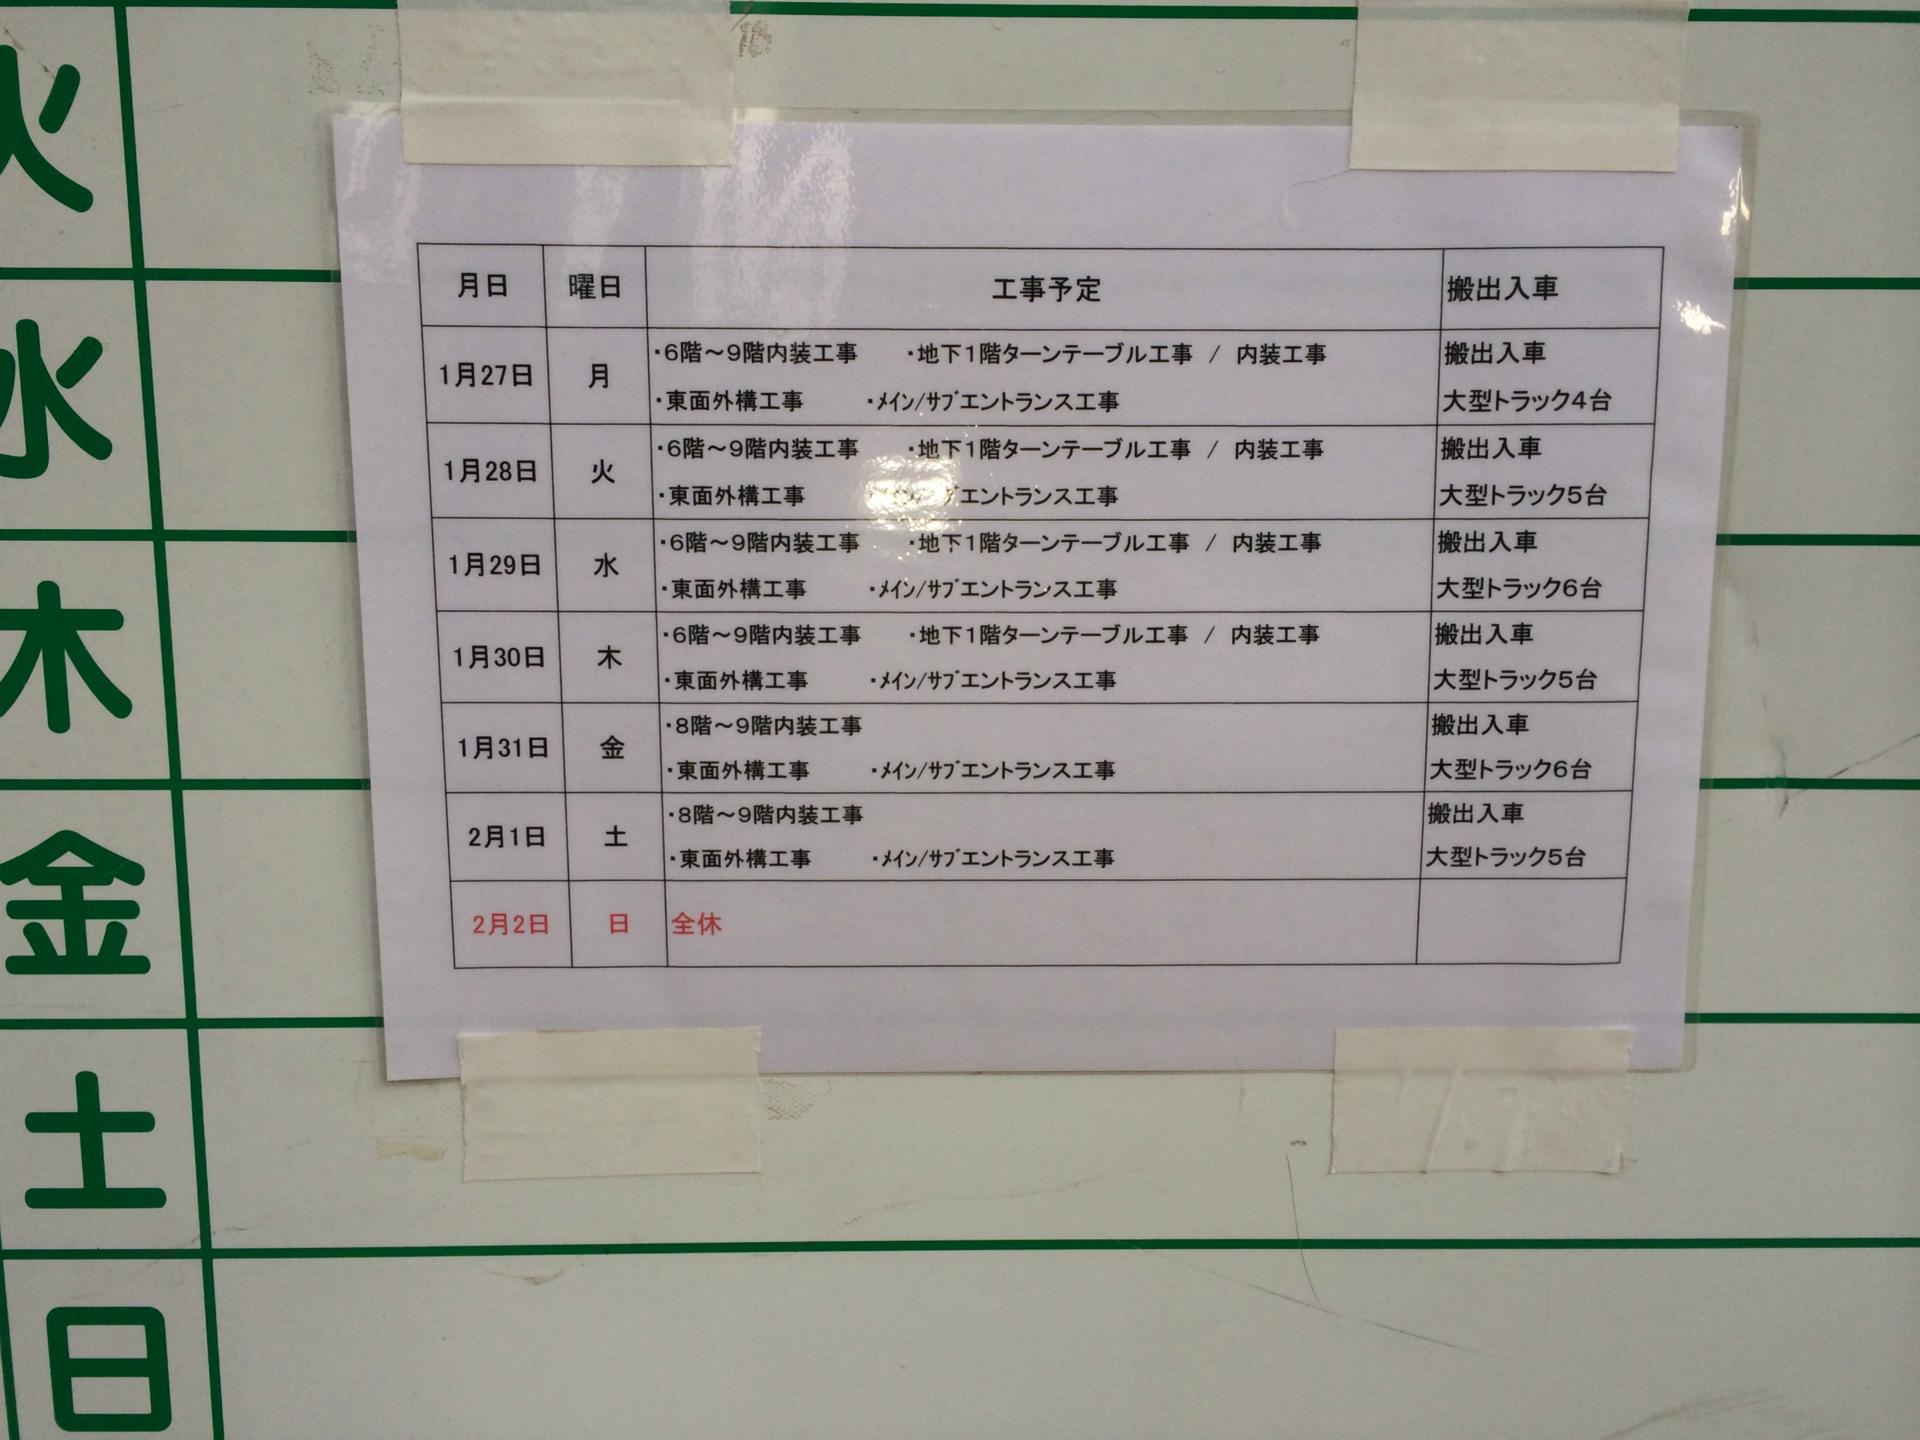 火
水
木
金
土
日
月日 曜日 工事予定 搬出入車
1月27日 月 ・6階～9階内装工事 ・地下1階ターンテーブル工事 / 内装工事 搬出入車
・東面外構工事 ・ﾒｲﾝ/ｻﾌﾞエントランス工事 大型トラック4台
1月28日 火 ・6階～9階内装工事 ・地下1階ターンテーブル工事 / 内装工事 搬出入車
・東面外構工事 エントランス工事 大型トラック5台
1月29日 水 ・6階～9階内装工事 ・地下1階ターンテーブル工事 / 内装工事 搬出入車
・東面外構工事 ・ﾒｲﾝ/ｻﾌﾞエントランス工事 大型トラック6台
1月30日 木 ・6階～9階内装工事 ・地下1階ターンテーブル工事 / 内装工事 搬出入車
・東面外構工事 ・ﾒｲﾝ/ｻﾌﾞエントランス工事 大型トラック5台
1月31日 金 ・8階～9階内装工事 搬出入車
・東面外構工事 ・ﾒｲﾝ/ｻﾌﾞエントランス工事 大型トラック6台
2月1日 土 ・8階～9階内装工事 搬出入車
・東面外構工事 ・ﾒｲﾝ/ｻﾌﾞエントランス工事 大型トラック5台
2月2日 日 全休